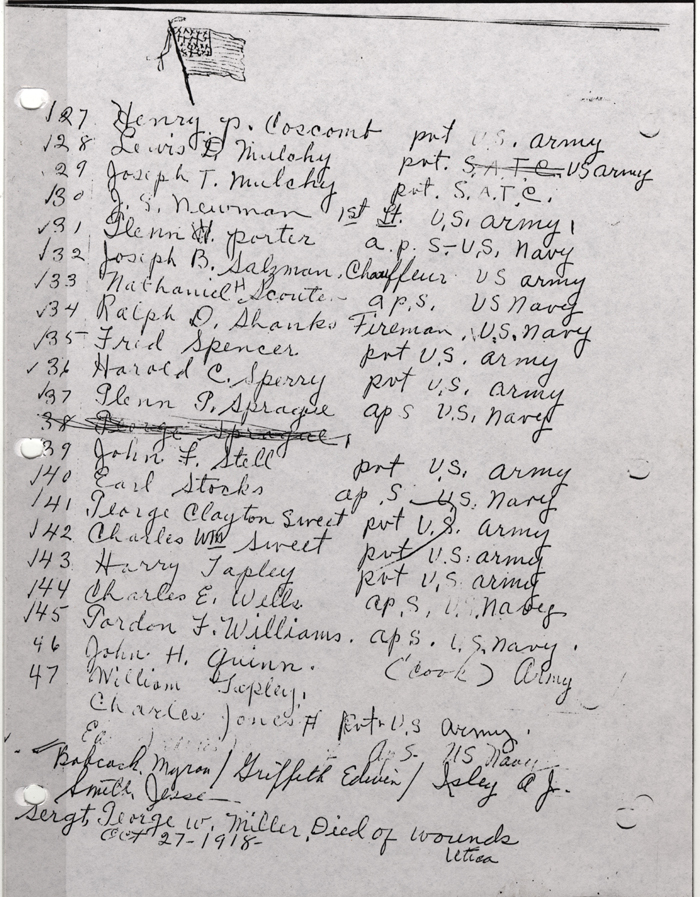 ✓27 Henry P. Coscomb pvt U.S. army
✓28 Lewis D. Mulchy pvt. S.A.T.C. US army
29 Joseph T. Mulchy pvt. S.A.T.C.
✓30 J. S. Newman 1st Lt. U.S. army
✓31 Glenn H. Porter a.p. S- U.S. Navy
✓32 Joseph B. Salzman. Chauffeur US army
✓33 Nathaniel H Scouten a p.s. US Navy
✓34 Ralph D. Shanks Fireman U.S. Navy
✓35 Fred Spencer pvt U.S. army
✓36 Harold C. Sperry pvt U.S. army
✓37 Glenn P. Sprague ap s U.S. Navy
38 George Sprague
✓39 John F. Stell pvt U.S. army
✓40 Earl Stocks ap. S U.S. Navy
✓41 George Clayton Sweet pvt U.S. army
✓42 Charles Wm Sweet pvt U.S. army
✓43 Harry Tapley pvt U.S. army
✓44 Charles E. Wells ap.S, U.S. Navy
✓45 Gordon F. Williams. ap s. U.S. Navy.
46 John H. Quinn. (cook) Army
47 William Tapley.
Charles Jones # pvt U.S army.
Ed ap S. US Navy
Babcock Myron / Griffeth Edwin / Isley A J.
Smith Jesse
Sergt George W. Miller. Died of wounds
Oct 27-1918- Utica